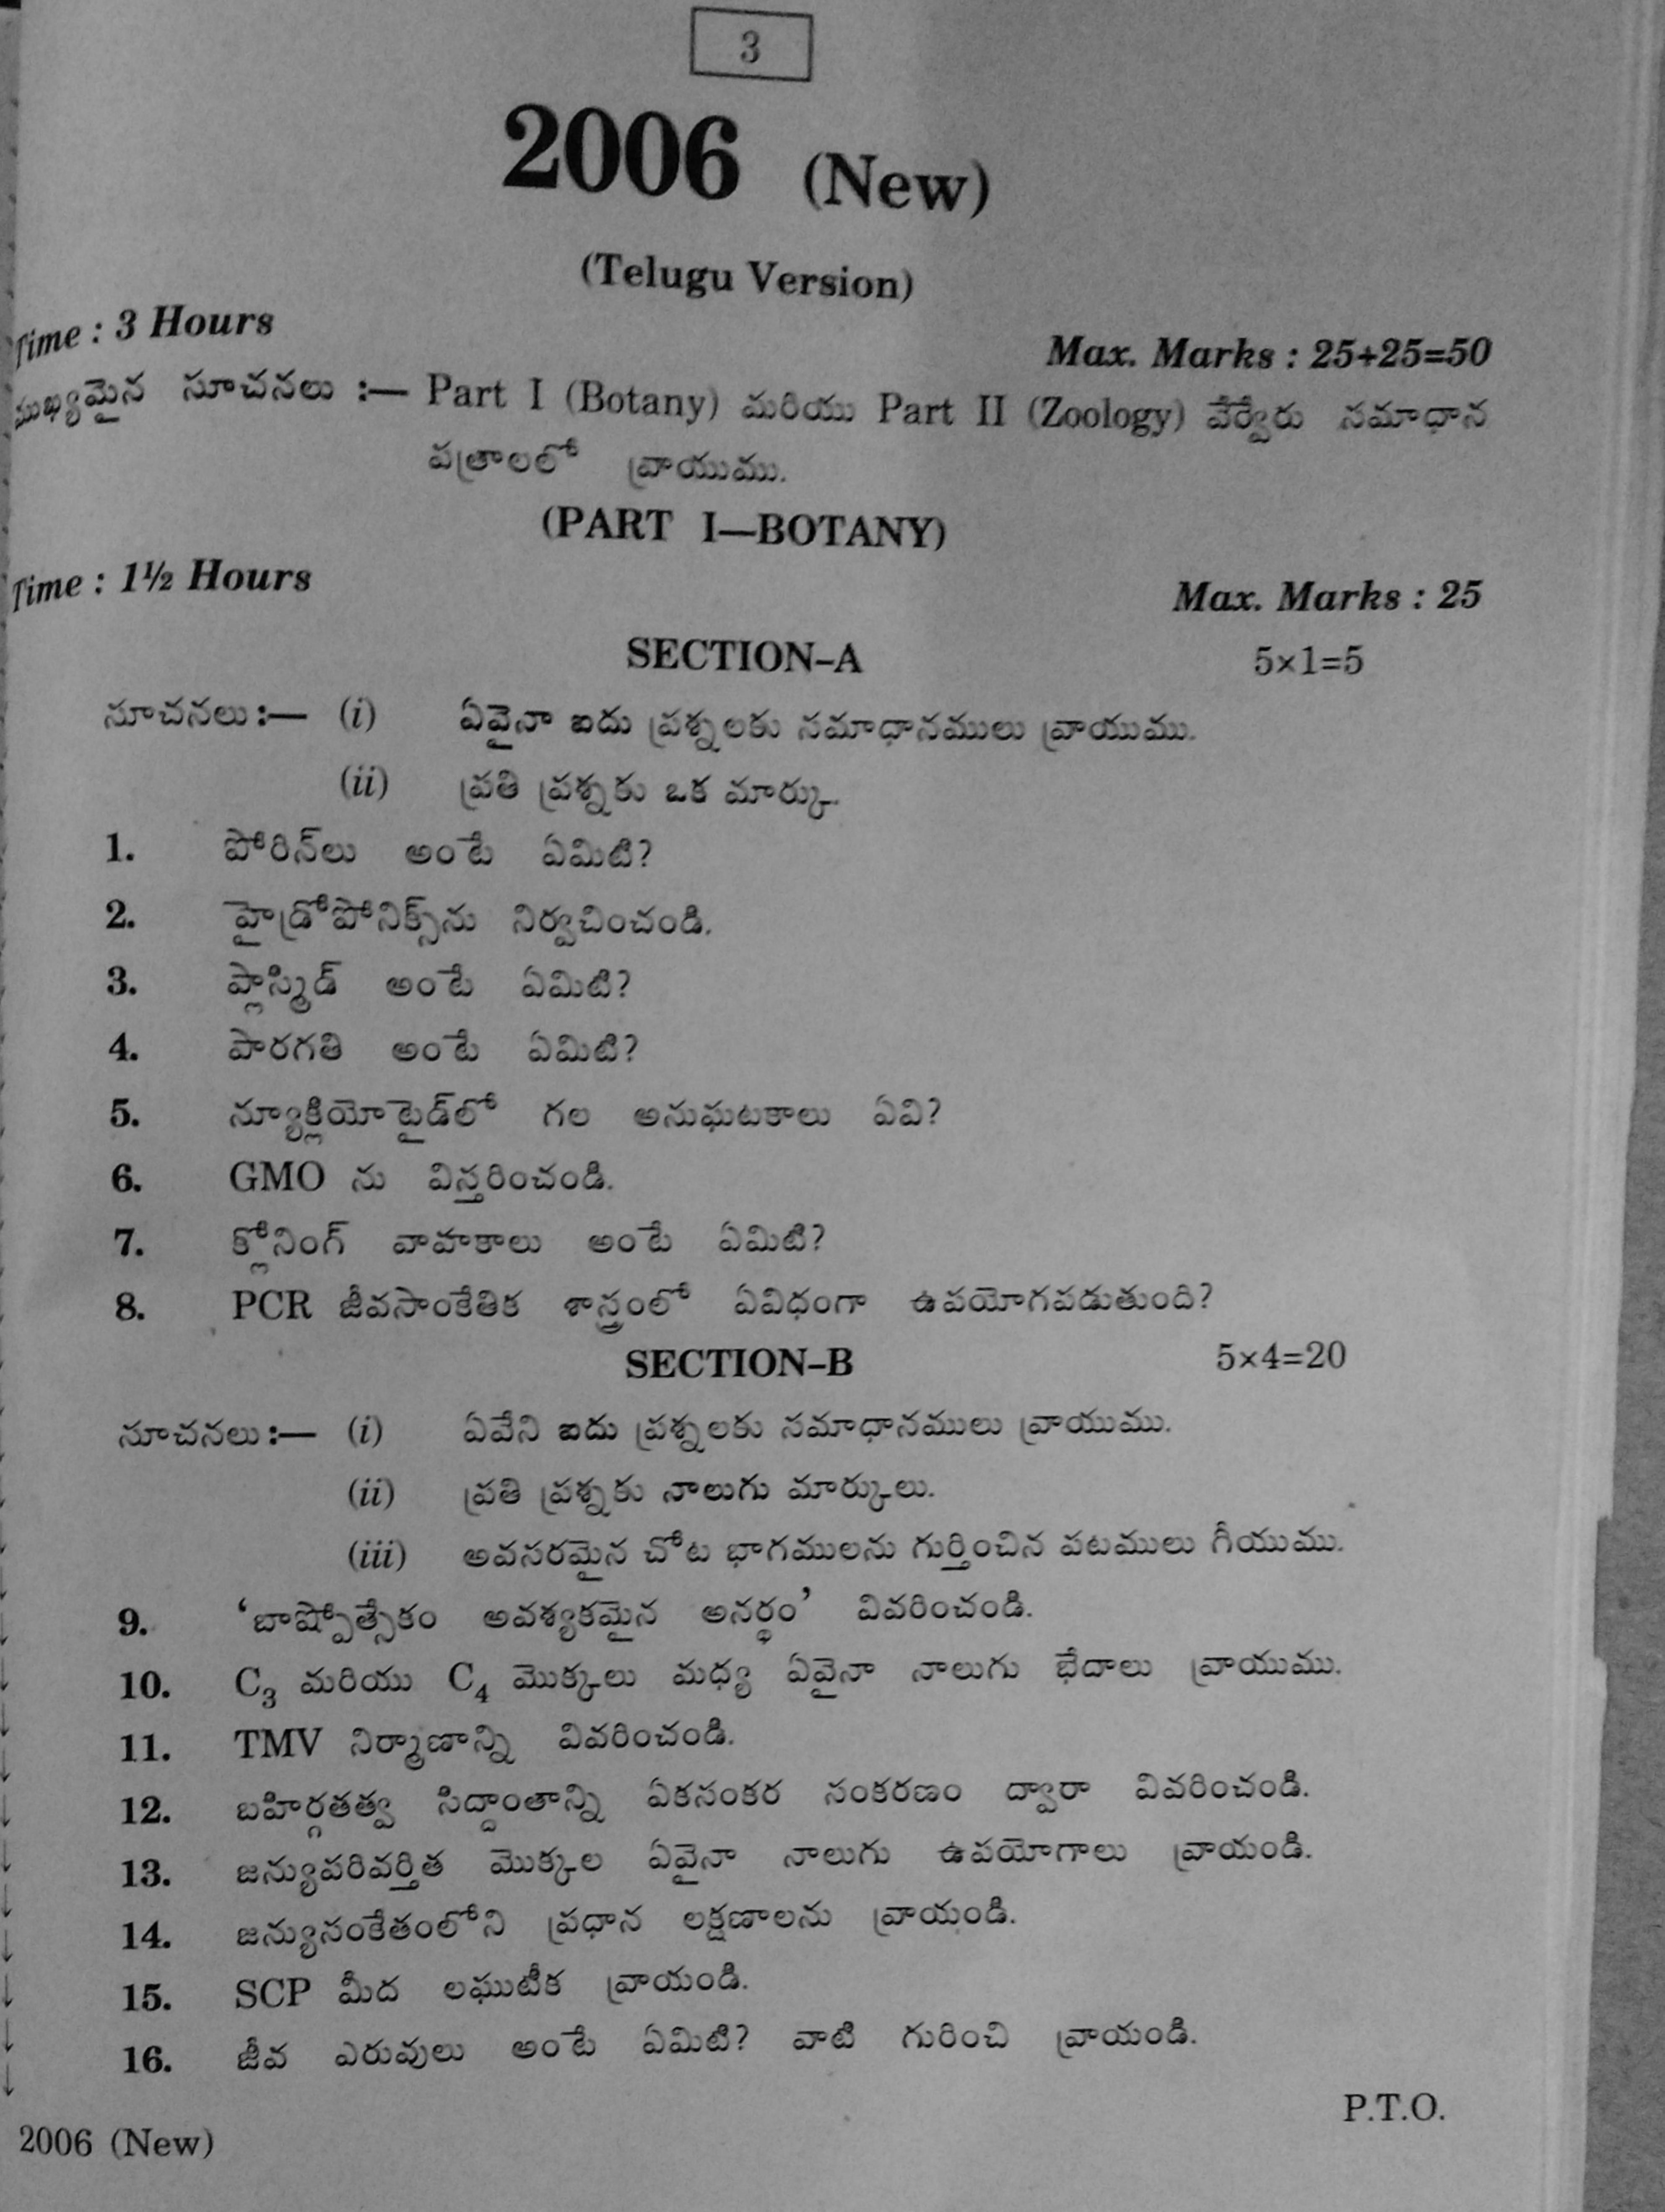 3
2006 (New)
(Telugu Version)
Time : 3 Hours
Max. Marks : 25+25=50
ముఖ్యమైన సూచనలు :— Part I (Botany) మరియు Part II (Zoology) వేర్వేరు సమాధాన
పత్రాలలో వ్రాయుము.
(PART I—BOTANY)
Time : 1½ Hours
Max. Marks : 25
SECTION–A 5×1=5
సూచనలు :— (i) ఏవైనా ఐదు ప్రశ్నలకు సమాధానములు వ్రాయుము.
(ii) ప్రతి ప్రశ్నకు ఒక మార్కు.
1. పోరిన్‌లు అంటే ఏమిటి?
2. హైడ్రోపోనిక్స్‌ను నిర్వచించండి.
3. ప్లాస్మిడ్ అంటే ఏమిటి?
4. పారగతి అంటే ఏమిటి?
5. న్యూక్లియోటైడ్‌లో గల అనుఘటకాలు ఏవి?
6. GMO ను విస్తరించండి.
7. క్లోనింగ్ వాహకాలు అంటే ఏమిటి?
8. PCR జీవసాంకేతిక శాస్త్రంలో ఏవిధంగా ఉపయోగపడుతుంది?
SECTION–B 5×4=20
సూచనలు :— (i) ఏవేని ఐదు ప్రశ్నలకు సమాధానములు వ్రాయుము.
(ii) ప్రతి ప్రశ్నకు నాలుగు మార్కులు.
(iii) అవసరమైన చోట భాగములను గుర్తించిన పటములు గీయుము.
9. ‘బాష్పోత్సేకం అవశ్యకమైన అనర్థం’ వివరించండి.
10. C₃ మరియు C₄ మొక్కలు మధ్య ఏవైనా నాలుగు భేదాలు వ్రాయుము.
11. TMV నిర్మాణాన్ని వివరించండి.
12. బహిర్గతత్వ సిద్దాంతాన్ని ఏకసంకర సంకరణం ద్వారా వివరించండి.
13. జన్యుపరివర్తిత మొక్కల ఏవైనా నాలుగు ఉపయోగాలు వ్రాయండి.
14. జన్యుసంకేతంలోని ప్రధాన లక్షణాలను వ్రాయండి.
15. SCP మీద లఘుటీక వ్రాయండి.
16. జీవ ఎరువులు అంటే ఏమిటి? వాటి గురించి వ్రాయండి.
P.T.O.
2006 (New)